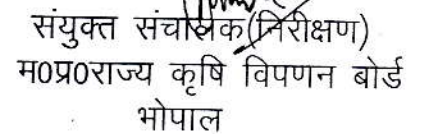 संयुक्त संचालक(निरीक्षण)
म0प्र0राज्य कृषि विपणन बोर्ड
भोपाल